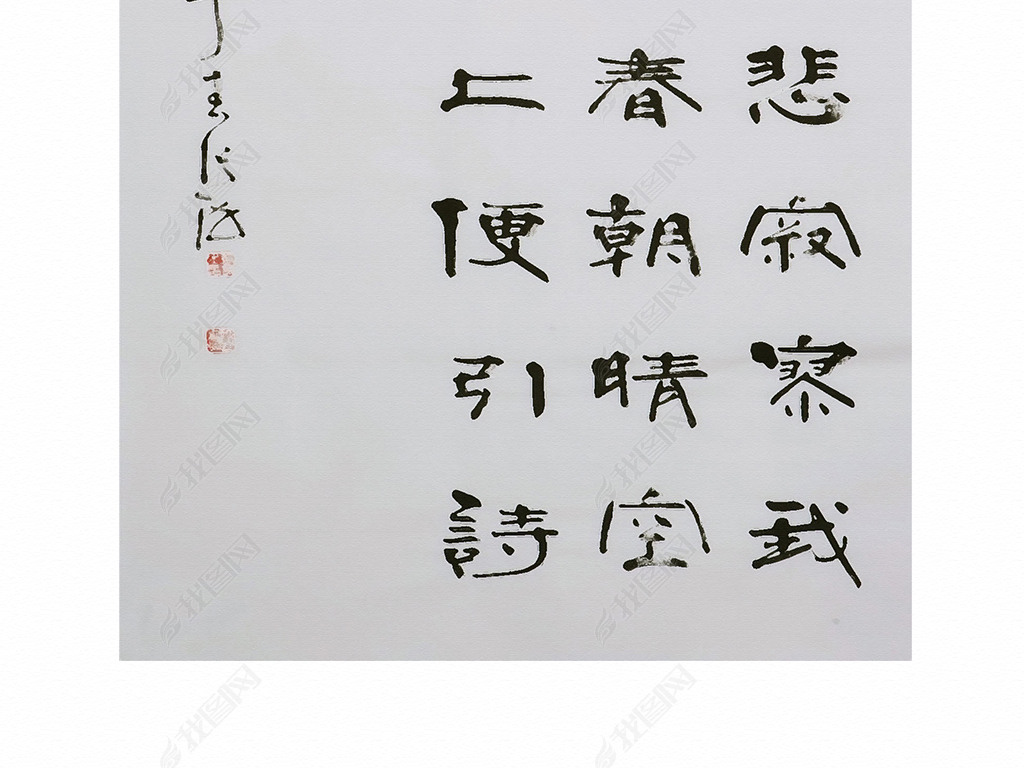 悲寂寥我
春朝晴空
上便引詩
我图网